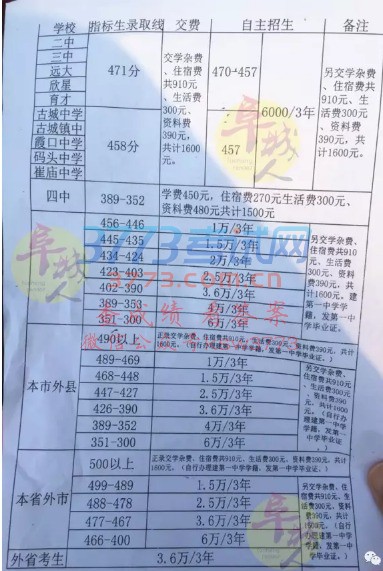 学校 指标生录取线 交费 自主招生 备注
二中
三中
远大
欣星
育才
471分
古城中学
古城镇中
霞口中学
码头中学
崔庙中学
458分
交学杂费、住宿费共910元、生活费300元、资料费390元,共计1600元。
470-457
457
6000/3年
另交学杂费、住宿费共910元、生活费300元、资料费390元,共计1600元。
四中 389-352 学费450元,住宿费270元生活费300元、资料费480元共计1500元
456-446 1万/3年
445-435 1.5万/3年
434-424 2万/3年
423-403 2.5万/3年
402-390 3.6万/3年
389-353
351-300 6万/3年
另交学杂费、住宿费共910元、生活费300元、资料费390元,共计1600元,建第一中学学籍,发第一中学毕业证。
本市外县
490以上 正录交学杂费、住宿费共910元,生活费300元、资料费390元,共计1600元。(自行办理建第一中学学籍,发第一中学毕业证。)
489-469 1万/3年
468-448 1.5万/3年
447-427 2.5万/3年
426-390 3.6万/3年
389-352 4万/3年
351-300 6万/3年
另交学杂费、住宿费共910元、生活费300元、资料费390元,共计1600元。(自行办理建第一中学学籍,发第一中学毕业证)
本省外市
500以上 正录交学杂费、住宿费共910元,生活费300元、资料费390元,共计1600元。(自行办理建第一中学学籍,发第一中学毕业证。)
499-489 1.5万/3年
488-478 2.5万/3年
477-467 3.6万/3年
466-400 6万/3年
另交学杂费、住宿费共910元、生活费300元、资料费390元,共计1600元。(自行办理建第一中学学籍,发第一中学毕业证)
外省考生 3.6万/3年
3773考试网
3773.com.cn
阜城人